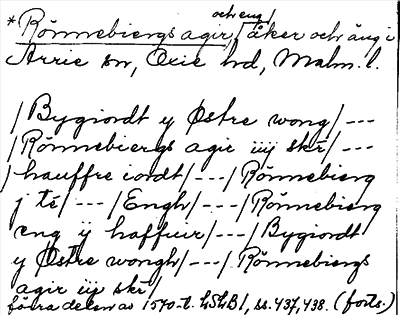 och eng/
*Rönnebiergs agir/åker och äng i
Arrie sn, Oxie hd, Malm. l.
/Bygiordt y Østre wong/---
/Rönnebiergs agir iij skr/---
/hauffre iordt/---/Rönnebierg
j te/---/Engh/---/Rönnebierg
eng ÿ haffuir/---/Bygiordt
y Østre wongh/---/Rönnebiergs
agir iij skr/
förra delen av 1570-t. LSLB1, ss. 437, 438. (forts.)